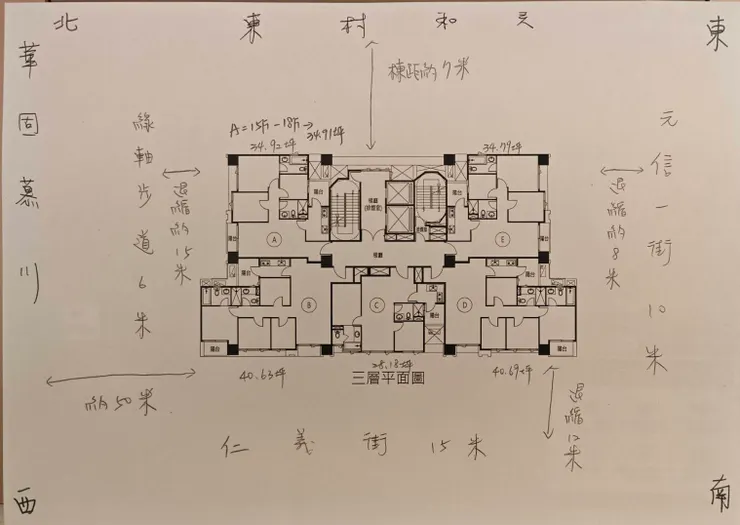 北
東村和
東
華固慕川
棟距約7米
綠軸步道6米
退縮約15米
A=15F-18F→34.91坪
34.92坪
34.79坪
元信一街10米
退縮約8米
陽台
梯廳
(排煙室)
陽台
陽台
A
梯廳
E
陽台
陽台
B
C
D
陽台
陽台
陽台
陽台
40.63坪
28.18坪
40.69坪
三層平面圖
約50米
退縮12米
仁義街15米
西
南